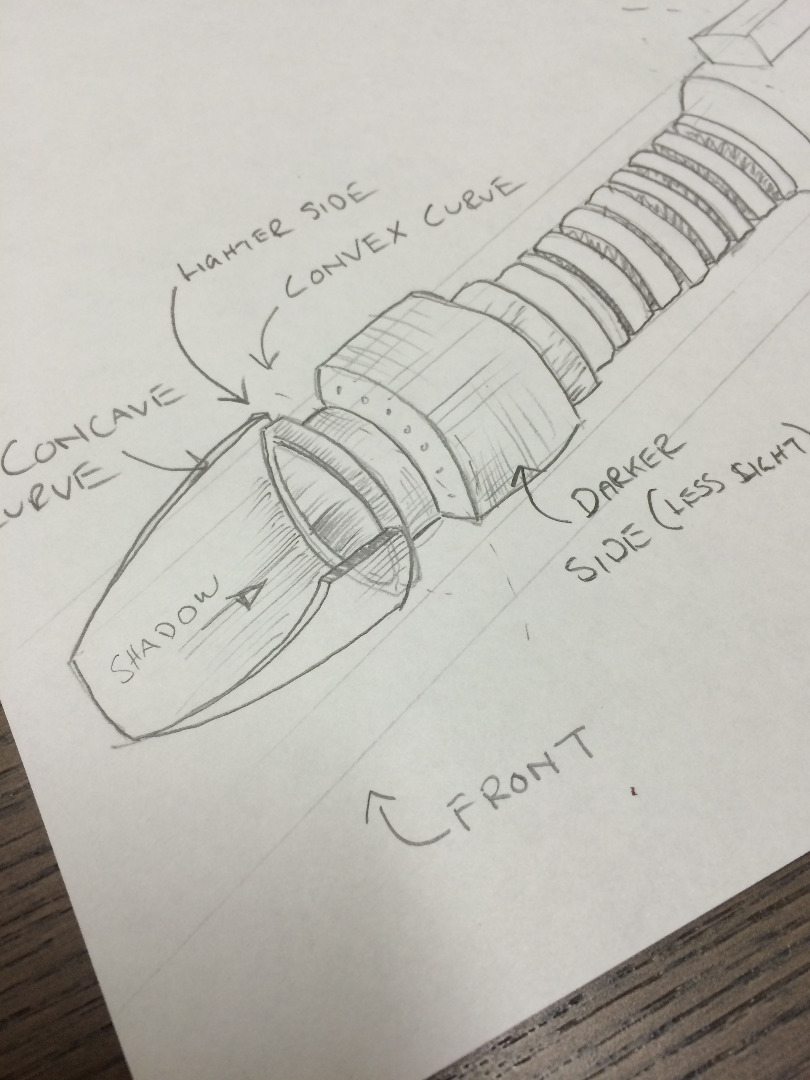 LIGHTER SIDE
CONVEX CURVE
CONCAVE
CURVE
SHADOW
DARKER
SIDE (LESS LIGHT)
FRONT